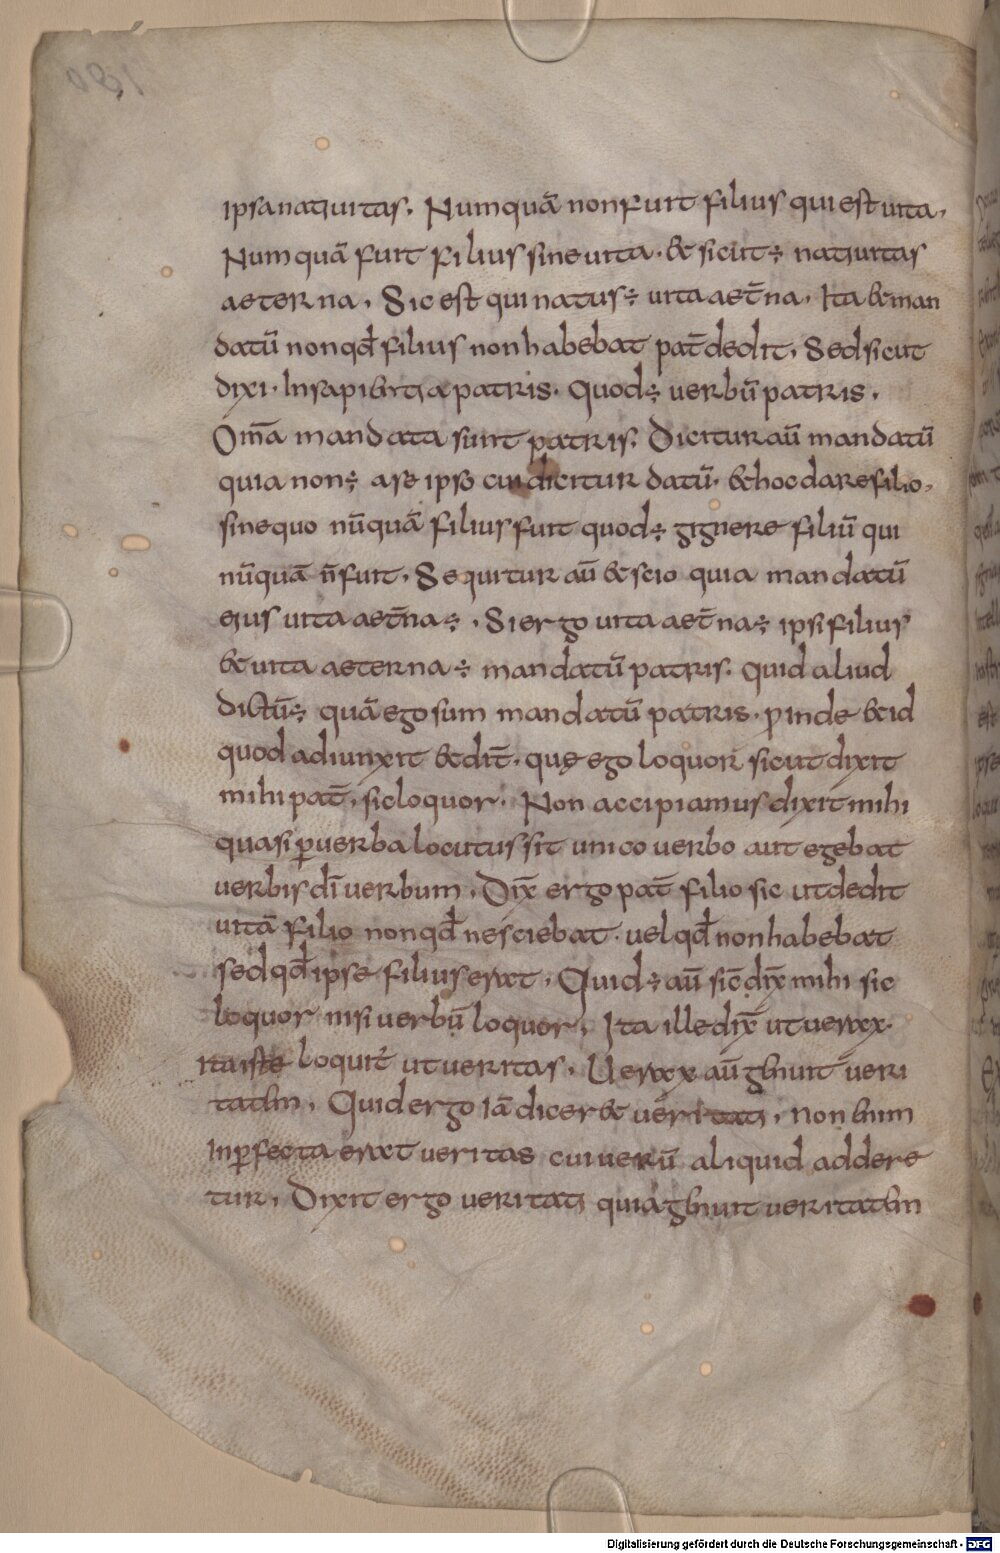 ipsa natiuitas. Numquā non fuit filius qui est uita.
Numquā fuit filius sine uita. & sicut ÷ natiuitas
aeterna. Sic est qui natus ÷ uita aet̄na. Ita & man
datū non qđ filius non habebat pat̄ dedit. Sed sicut
dixi. In sapientia patris. Quod ÷ uerbū patris.
Om̄a mandata sunt patris. Dicitur aū mandatū
quia non ÷ a se ipso cui dicitur datū. & hoc dare filio.
sine quo nūquā filius fuit quod ÷ gignere filiū qui
nūquā n̄ fuit. Sequitur aū & scio quia mandatū
eius uita aet̄na ÷. Si ergo uita aet̄na ÷ ipsi filius
& uita aeterna ÷ mandatū patris. Quid aliud
dictū ÷ quā ego sum mandatū patris. proinde & id
quod adiunxit & dix̄. quę ego loquor sicut dixit
mihi pat̄. sic loquor. Non accipiamus dixit mihi
quasi p̄ uerba locutus sit unico uerbo aut egebat
uerbis dī uerbum. Dix̄ ergo pat̄ filio sic ut dedit
uitā filio non qđ nesciebat. uel qđ non habebat
sed qđ ipse filius erat. Quid ÷ aū sic̄ dix̄ mihi sic
loquor nisi uerbū loquor. Ita ille dix̄ ut uerax.
ita iste loquit̄ ut ueritas. Uerax aū genuit ueri
tatem. Quid ergo iā diceret ueritati. non enim
inp̄fecta erat ueritas cui uerū aliquid addere
tur. Dixit ergo ueritati quia genuit ueritatem
Digitalisierung gefördert durch die Deutsche Forschungsgemeinschaft - DFG